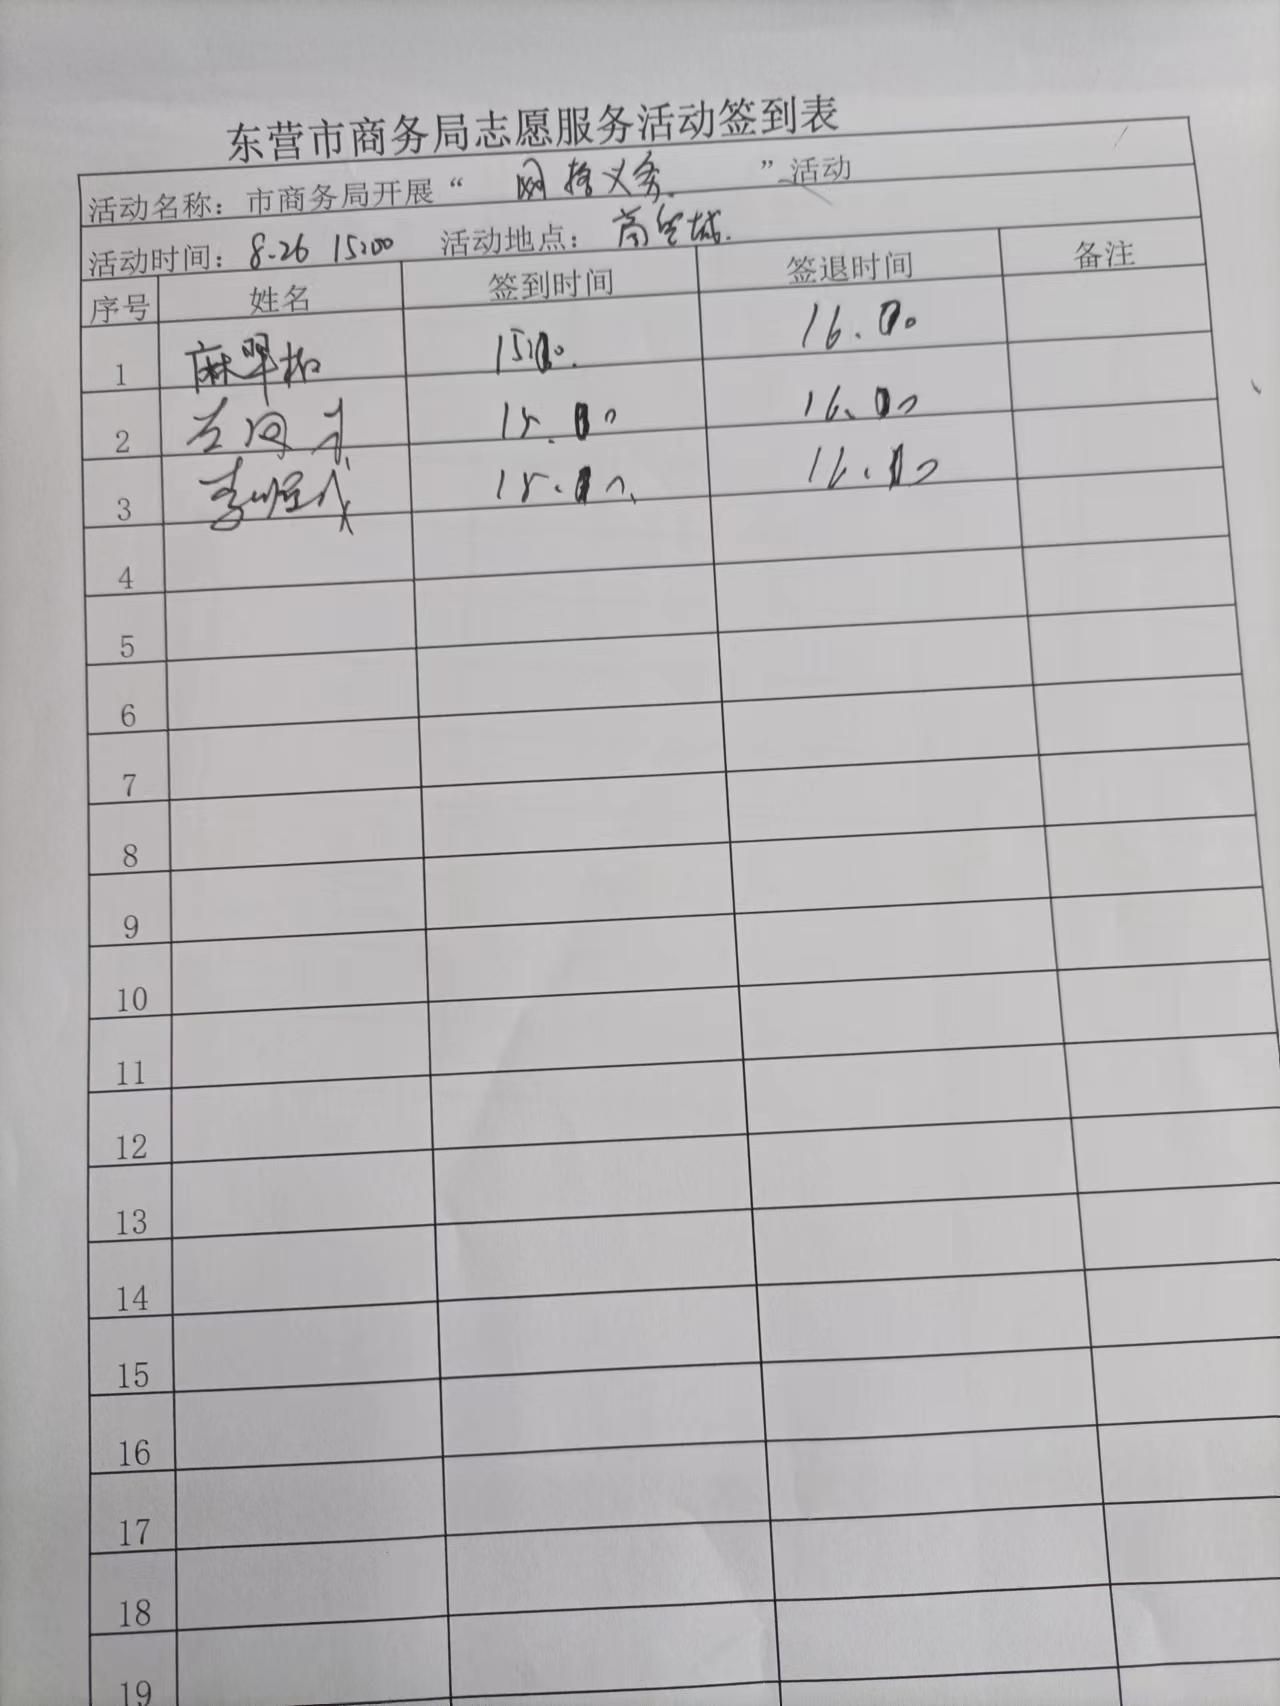 东营市商务局志愿服务活动签到表
活动名称：市商务局开展“ 网格义务 ”活动
活动时间：8.26 15:00 活动地点：商贸城.
序号 姓名 签到时间 签退时间 备注
1 麻翠 15:00. 16.00
2 15.00 16.00
3 李 15.00 16.00
4
5
6
7
8
9
10
11
12
13
14
15
16
17
18
19